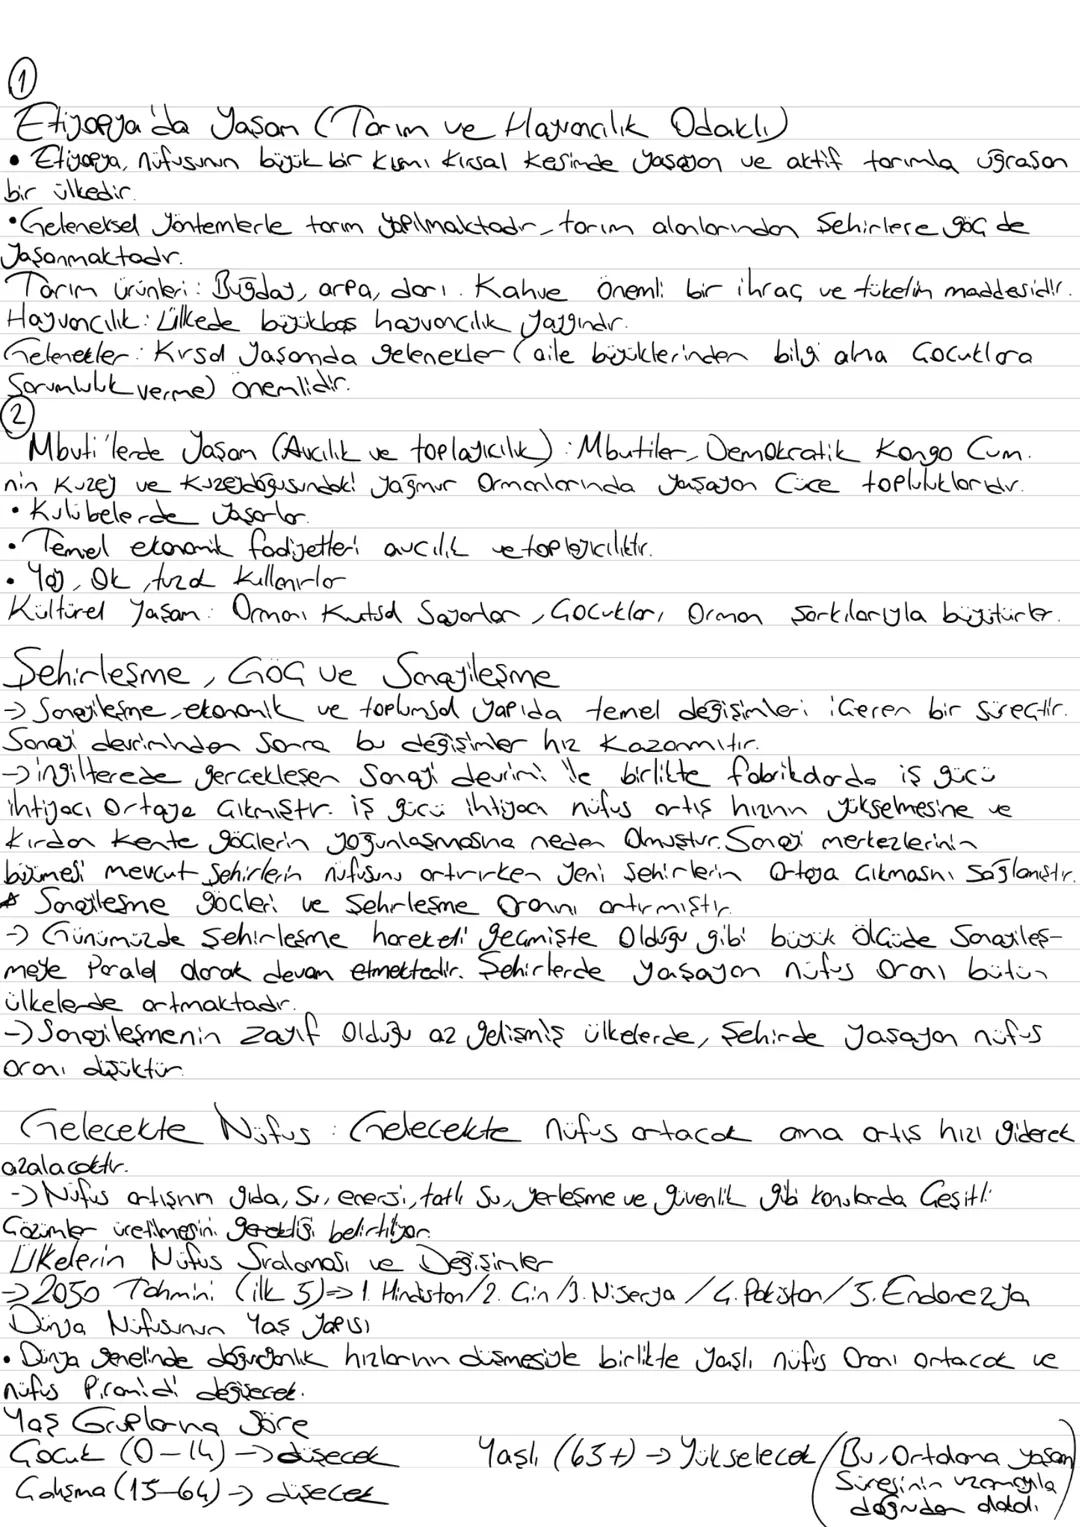 1
Etiyopya'da Yaşam (Tarım ve Hayvancılık Odaklı)
• Etiyopya, nüfusunun büyük bir kısmı kırsal kesimde yaşayan ve aktif tarımla uğraşan
bir ülkedir.
• Geleneksel yöntemlerle tarım yapılmaktadır, tarım alanlarından şehirlere göç de
yaşanmaktadır.
Tarım ürünleri: Buğday, arpa, darı. Kahve önemli bir ihraç ve tüketim maddesidir.
Hayvancılık: Ülkede büyükbaş hayvancılık yaygındır.
Gelenekler: Kırsal yaşamda gelenekler (aile büyüklerinden bilgi alma çocuklara
sorumluluk verme) önemlidir.
2
Mbuti'lerde Yaşam (Avcılık ve toplayıcılık): Mbutiler, Demokratik Kongo Cum.
nin Kuzey ve Kuzeydoğusundaki yağmur ormanlarında yaşayan cüce topluluklarıdır.
• Kulübelerde yaşarlar.
• Temel ekonomik faaliyetleri avcılık ve toplayıcılıktır.
• Yay, ok, tuzak kullanırlar
Kültürel Yaşam: Ormanı Kutsal Sayarlar, Çocukları Orman şarkılarıyla büyütürler.
Şehirleşme, Göç ve Sanayileşme
-> Sanayileşme, ekonomik ve toplumsal yapıda temel değişimleri içeren bir süreçtir.
Sanayi devriminden sonra bu değişimler hız kazanmıştır.
-> İngilterede gerçekleşen Sanayi devrimi ile birlikte fabrikalarda iş gücü
ihtiyacı ortaya çıkmıştır. İş gücü ihtiyacı nüfus artış hızının yükselmesine ve
kırdan kente göçlerin yoğunlaşmasına neden olmuştur. Sanayi merkezlerinin
büyümesi mevcut şehirlerin nüfusunu artırırken yeni şehirlerin ortaya çıkmasını sağlamıştır.
* Sanayileşme göçleri ve şehirleşme oranını artırmıştır.
-> Günümüzde şehirleşme hareketi geçmişte olduğu gibi büyük ölçüde Sanayileş-
meye Paralel olarak devam etmektedir. Şehirlerde yaşayan nüfus oranı bütün
ülkelerde artmaktadır.
-> Sanayileşmenin zayıf olduğu az gelişmiş ülkelerde, şehirde yaşayan nüfus
oranı düşüktür.
Gelecekte Nüfus: Gelecekte nüfus artacak ama artış hızı giderek
azalacaktır.
-> Nüfus artışının gıda, su, enerji, tatlı su, yerleşme ve güvenlik gibi konularda çeşitli
çözümler üretilmesini gerektiği belirtiliyor.
Ülkelerin Nüfus Sıralaması ve Değişimler
-> 2050 Tahmini (ilk 5) => 1. Hindistan/2. Çin/3. Nijerya /4. Pakistan/5. Endonezya
Dünya Nüfusunun Yaş Yapısı
• Dünya genelinde doğurganlık hızlarının düşmesiyle birlikte yaşlı nüfus oranı artacak ve
nüfus Piramidi değişecek.
Yaş Gruplarına Göre
Çocuk (0-14) -> düşecek
Çalışma (15-64) -> düşecek
Yaşlı (65+) -> Yükselecek
(Bu, Ortalama yaşam
Süresinin uzamasıyla
doğrudan alakalı)